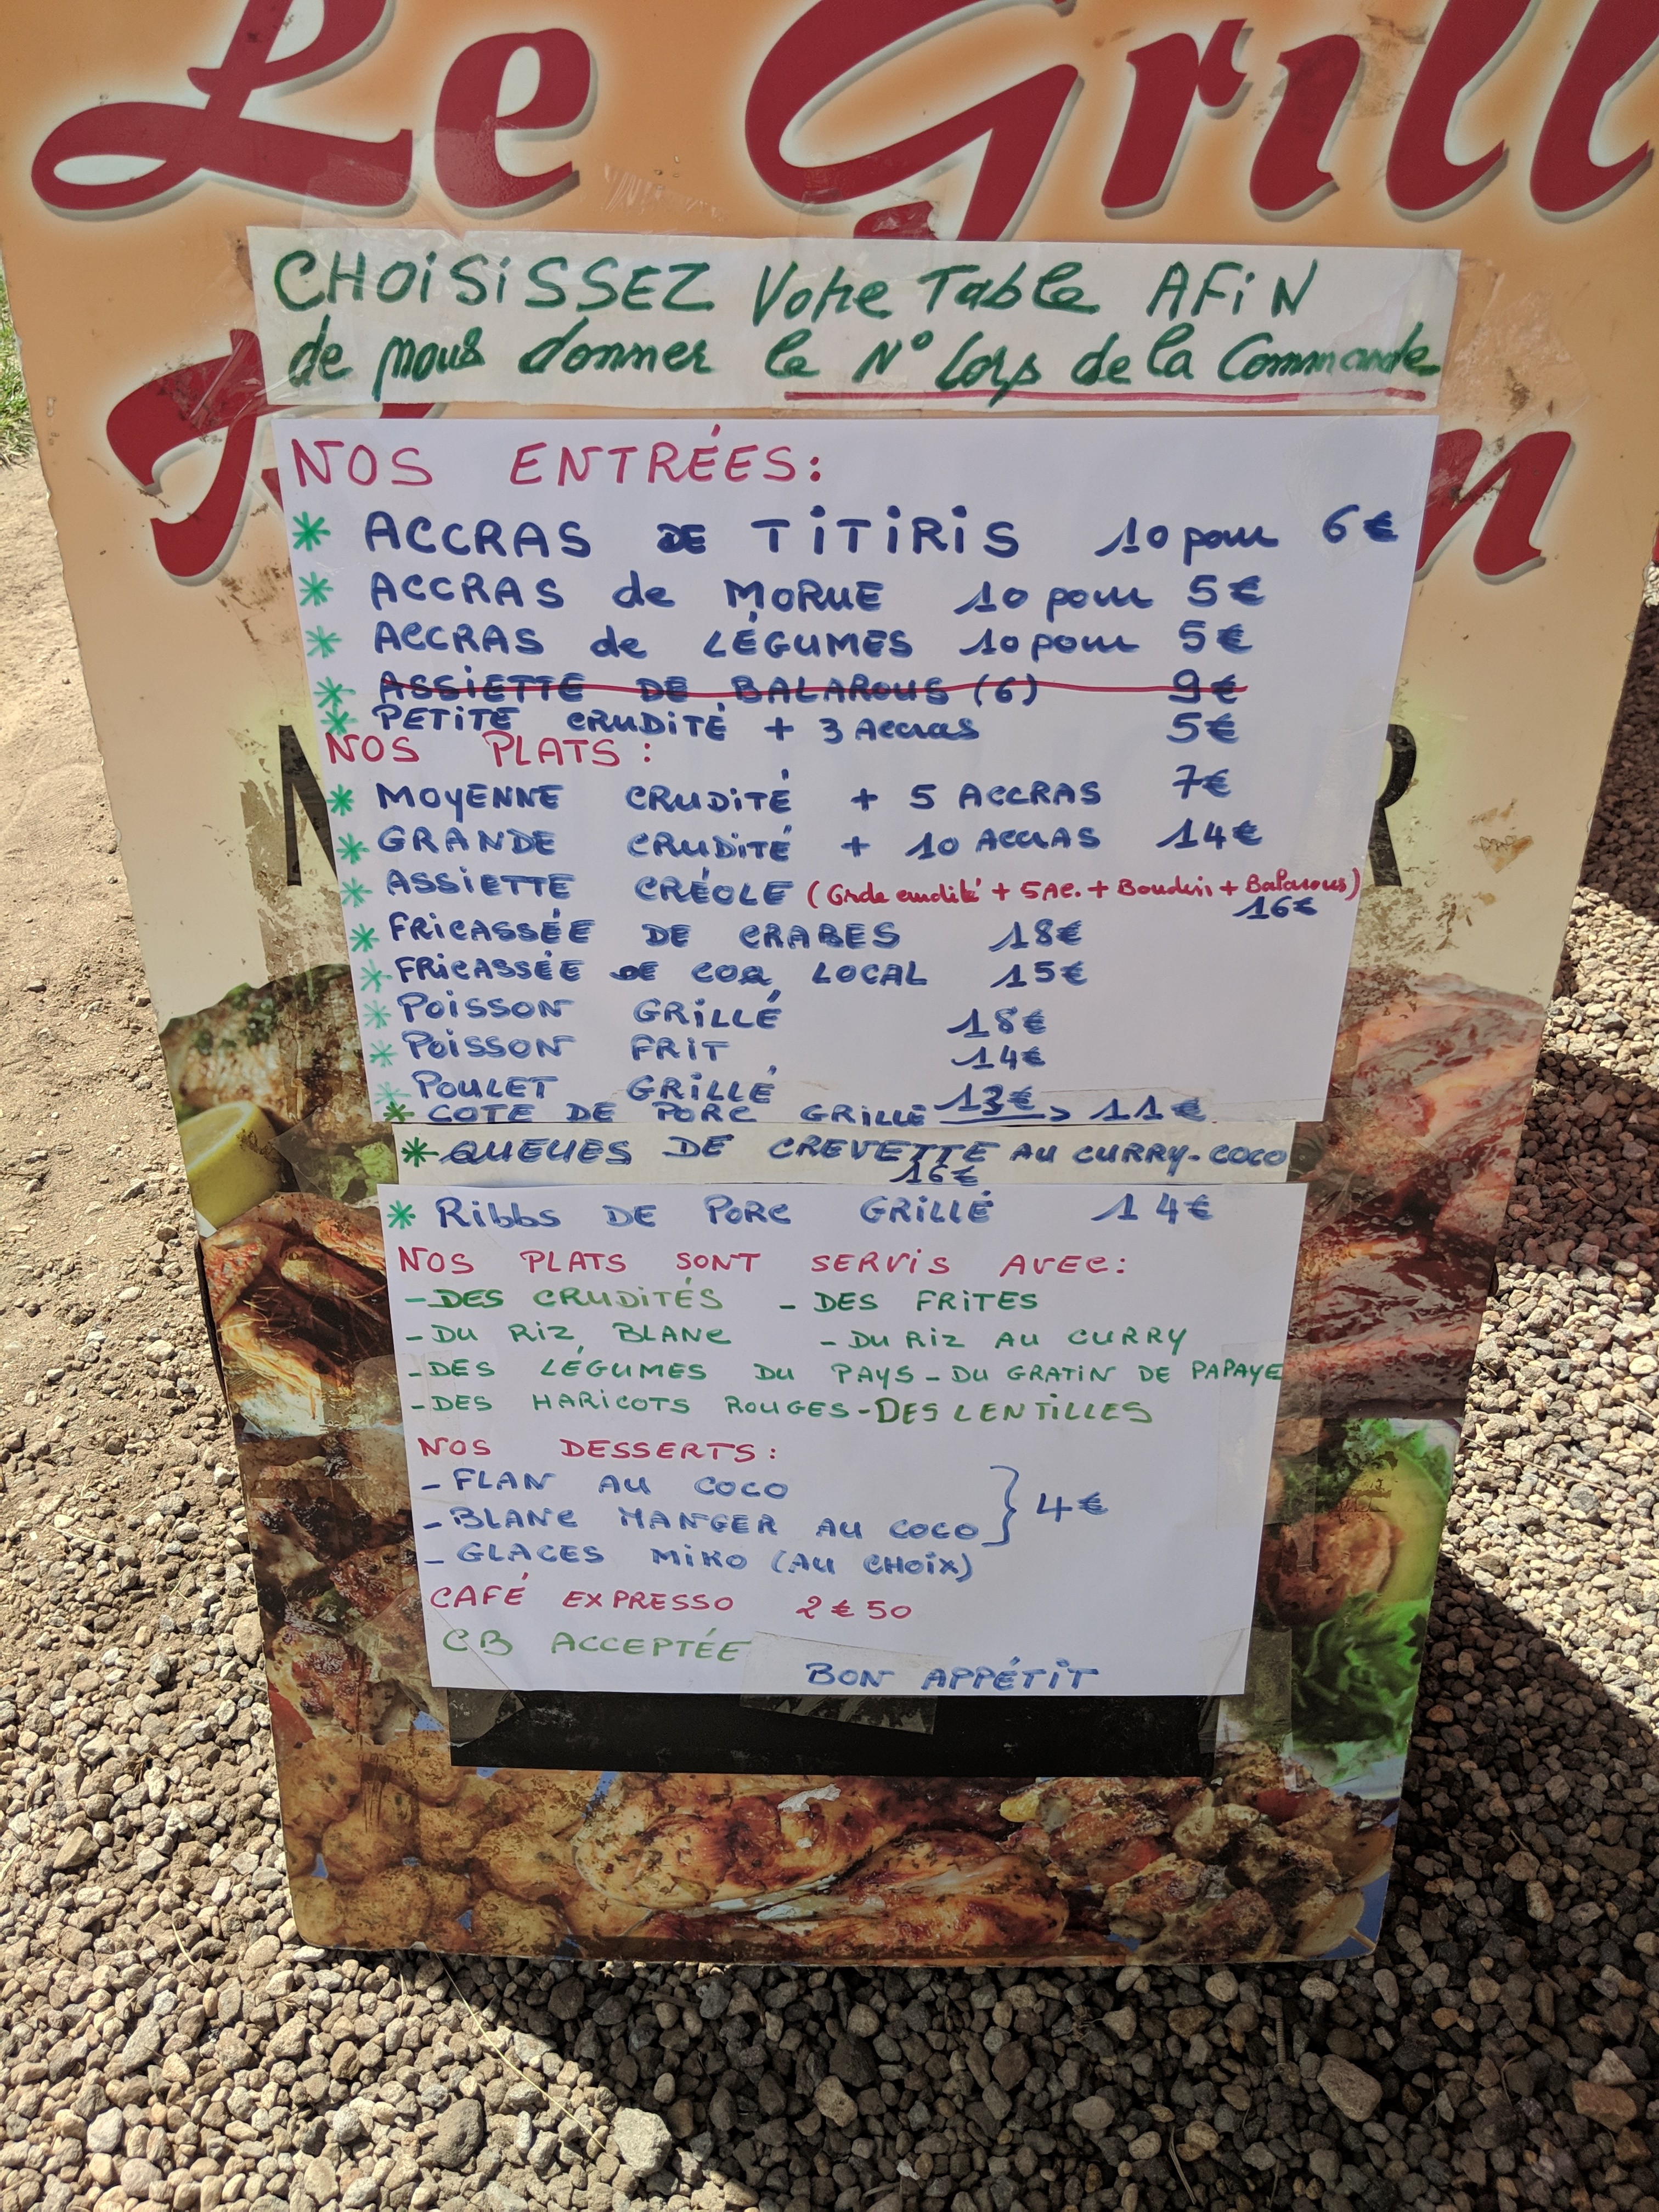 Le Grill
CHOISISSEZ Votre Table AFIN
de nous donner le N° Lors de la Commande
NOS ENTRÉES:
* ACCRAS DE TITIRIS 10 pour 6€
* ACCRAS de MORUE 10 pour 5€
* ACCRAS de LÉGUMES 10 pour 5€
* ASSIETTE DE BALAROUS (6) 9€
* PETITE CRUDITÉ + 3 Accras 5€
NOS PLATS:
* MOYENNE CRUDITÉ + 5 ACCRAS 7€
* GRANDE CRUDITÉ + 10 ACCRAS 14€
* ASSIETTE CRÉOLE (Grde crudité + 5 Ac. + Boudin + Balarous)
16€
* FRICASSÉE DE CRABES 18€
* FRICASSÉE DE COQ LOCAL 15€
* POISSON GRILLÉ 18€
* POISSON FRIT 14€
* POULET GRILLÉ 13€
* COTE DE PORC GRILLÉ → 11€
* QUEUES DE CREVETTE AU CURRY-COCO
16€
* Ribbs DE PORC GRILLÉ 14€
NOS PLATS SONT SERVIS AVEC:
- DES CRUDITÉS - DES FRITES
- DU RIZ BLANC - DU RIZ AU CURRY
- DES LÉGUMES DU PAYS - DU GRATIN DE PAPAYE
- DES HARICOTS ROUGES - DES LENTILLES
NOS DESSERTS:
- FLAN AU COCO
- BLANC MANGER AU COCO } 4€
- GLACES MIKO (AU CHOIX)
CAFÉ EXPRESSO 2€50
CB ACCEPTÉE
BON APPÉTIT